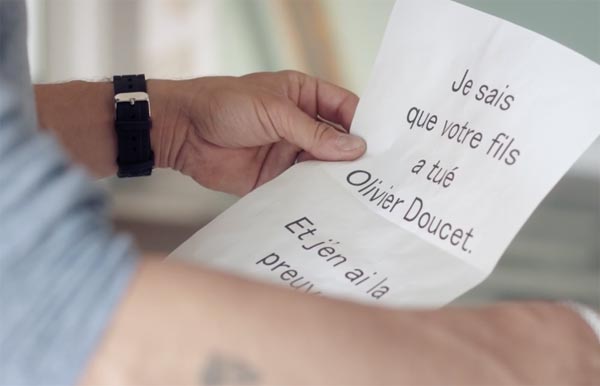 Je sais
que votre fils
a tué
Olivier Doucet.
Et j'en ai la